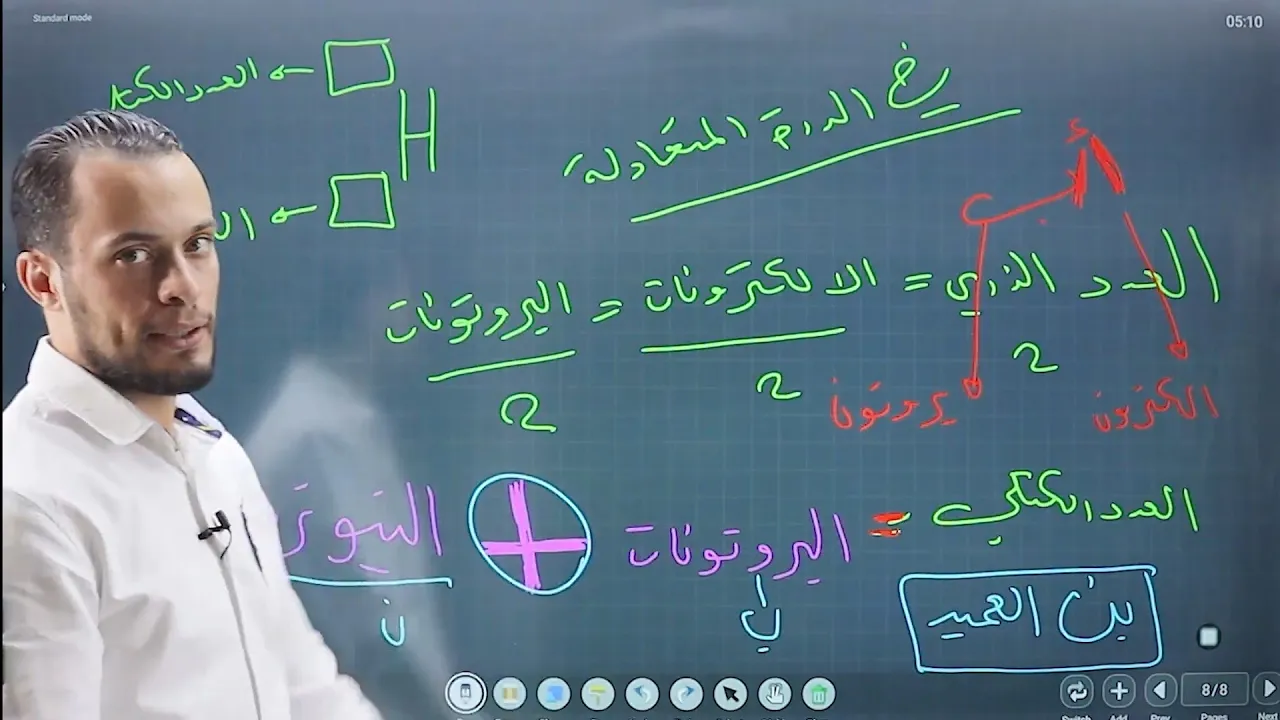 Standard mode
05:10
في الذرة المتعادلة
العدد الكتلي ←
H
←
أب
العدد الذري = الالكترونات = البروتونات
2 2 2
الكترون
بروتون
العدد الكتلي = البروتونات + النيوتر
ب ن
بن العميد
8/8
Switch Add Prev Pages Next